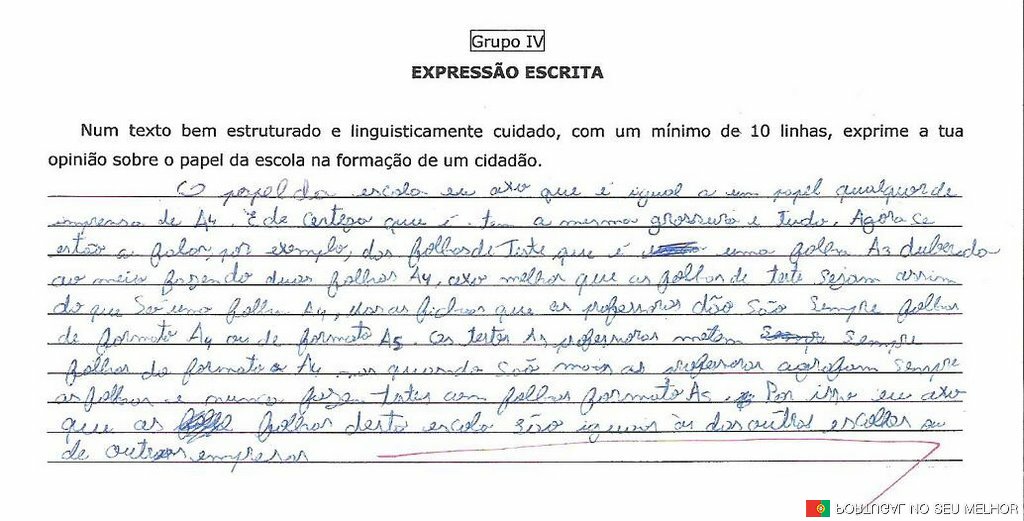 Grupo IV
EXPRESSÃO ESCRITA
Num texto bem estruturado e linguisticamente cuidado, com um mínimo de 10 linhas, exprime a tua
opinião sobre o papel da escola na formação de um cidadão.
O papel da escola eu axo que é igual a um papel qualquer de
imprensa de A4. E de certeza que é. tem a mesma grossura e tudo. Agora ce
estão a falar, por exemplo, das folhas de Teste que é uma folha A3 dubrada
ao meio fazendo duas folhas A4, axo melhor que as folhas de teste sejam assim
do que Só uma folha A4, as fichas que as professoras dão São Sempre folhas
de formato A4 ou de formato A5. Os testes As professoras metem Sempre
folhas do formato A4 quando São as professoras agrafam Sempre
as folhas e nunca fazem testes com folhas formato A5. Por isso eu axo
que as folhas desta escola são iguais às das outras escolas ou
de outras empresas
PORTUGAL NO SEU MELHOR